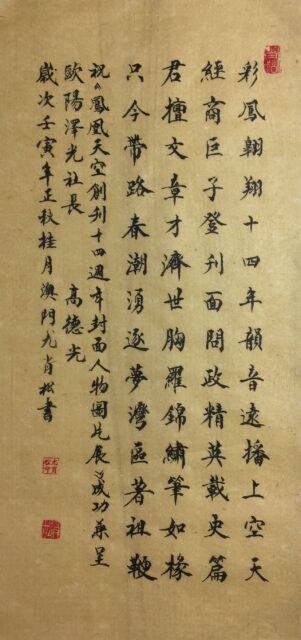 彩鳳翺翔十四年韻音遠播上空天
經商巨子登刊面閱政精英載史篇
君擅文章才濟世胸羅錦繡筆如椽
只今帶路春潮湧逐夢灣區著祖鞭
祝《鳳凰天空創刊十四週年封面人物圖片展》成功兼呈
歐陽澤光社長 高德光
歲次壬寅年正秋桂月澳門尤肖松書